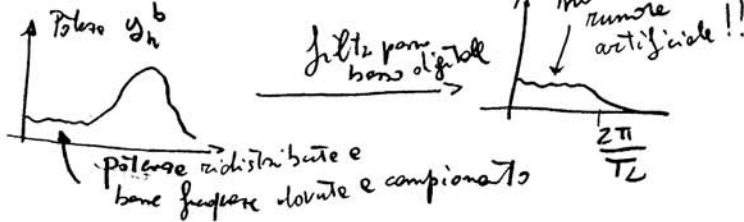 Potenze y_n^b
filtro passa
basso digitale
rumore
artificiale !!
2π
T_L
potenze ridistribuite e
basse frequenze dovute e campionato